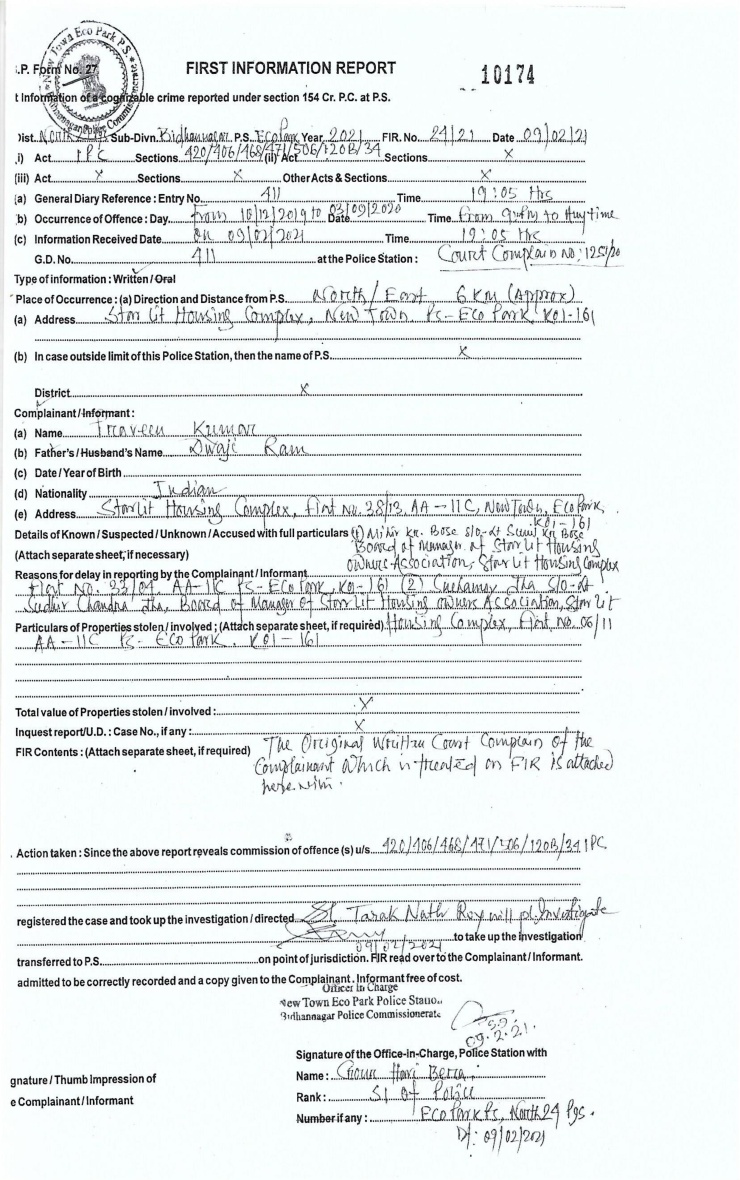 New Town Eco Park P.S.
Bidhannagar Police Commissionerate
.P. Form No. 27
FIRST INFORMATION REPORT
10174
t Information of a cognizable crime reported under section 154 Cr. P.C. at P.S.
Dist. North Sub-Divn. Bidhannagar P.S. Eco Park Year 2021 FIR. No. 24/21 Date 09/02/21
.i) Act IPC Sections 420/406/468/471/506/120B/34 (ii) Act Sections X
(iii) Act X Sections X Other Acts & Sections X
(a) General Diary Reference : Entry No. 411 Time 19:05 Hrs
(b) Occurrence of Offence : Day From 10/12/2019 to Date 03/09/2020 Time From 9 PM to Any time
(c) Information Received Date on 09/02/2021 Time 19:05 Hrs
G.D. No. 411 at the Police Station : Court Complain no: 125/20
Type of information : Written / Oral
Place of Occurrence : (a) Direction and Distance from P.S. North/East 6 KM (Approx)
(a) Address Star Lit Housing Complex, New Town Ps- Eco Park Kol-161
(b) In case outside limit of this Police Station, then the name of P.S. X
District X
Complainant / Informant :
(a) Name Praveen Kumar
(b) Father's / Husband's Name Dwaji Ram
(c) Date / Year of Birth
(d) Nationality Indian
(e) Address Starlit Housing Complex, Flat no. 38/13 AA-11C, New Town, Eco Park,
Kol-161
Details of Known / Suspected / Unknown / Accused with full particulars (1) Mihir Kr. Bose s/o-Lt Sunil Kr Bose
(Attach separate sheet, if necessary) Board of Manager of Star Lit Housing
Owners Association, Star Lit Housing Complex
Reasons for delay in reporting by the Complainant / Informant
Flat No. 33/04 AA-11C Ps-Eco Park, Kol-161 (2) Jha s/o-Lt
Sudhir Chandra Jha, Board of Manager of Star Lit Housing Owners Association, Star Lit
Particulars of Properties stolen / involved ; (Attach separate sheet, if required) Housing Complex, Flat no. 06/11
AA-11C Ps- Eco Park. Kol-161
Total value of Properties stolen / involved : X
Inquest report/U.D. : Case No., if any : X
FIR Contents : (Attach separate sheet, if required) The Original Written Court Complain of the
Complainant Which is treated as FIR is attached
here with.
. Action taken : Since the above report reveals commission of offence (s) u/s. 420/406/468/471/506/120B/34 IPC
registered the case and took up the investigation / directed SI Tarak Nath Roy will pl. Investigate
to take up the investigation
09/02/2021
transferred to P.S. on point of jurisdiction. FIR read over to the Complainant / Informant.
admitted to be correctly recorded and a copy given to the Complainant. Informant free of cost.
Officer In Charge
New Town Eco Park Police Station
Bidhannagar Police Commissionerate
09.2.21.
Signature of the Office-in-Charge, Police Station with
gnature / Thumb Impression of
Name : Hari Berra
e Complainant / Informant
Rank : SI of Police
Number if any : Eco Park Ps, North 24 Pgs.
Dt: 09/02/2021